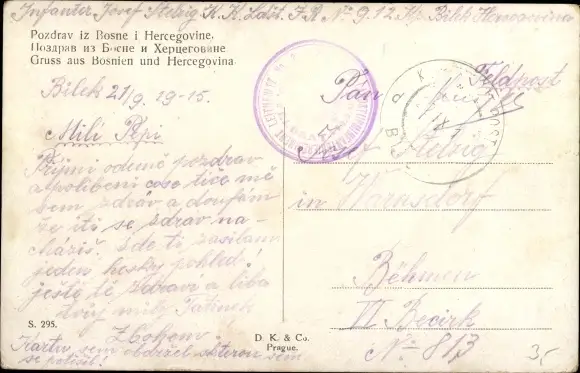 Infanter Josef Stelzig K. K. Ldst. I. R. No 9. 12 Kp. Bilek Hercegovina
Pozdrav iz Bosne i Hercegovine.
Поздрав из Босне и Херцеговине
Gruss aus Bosnien und Hercegovina
Feldpost
Bilek 21/9. 19-15.
Milí Pepi
Přijmi odemě pozdrav
a políbení coso tiče mě
sem zdráv a doufám
že i ti se zdráv na-
cházíš. Zde ti zasílám
jeden hosky pohled!
ještě tě zdravá a líbá
tvůj milý Tatínek
Zbohem.
Kartu sem obdržel sem
se potěšil
S. 295.
D. K. & Co.
Prague.
Pán
Stelzig
in Warnsdorf
Böhmen
VI Bezirk
No 813
35,